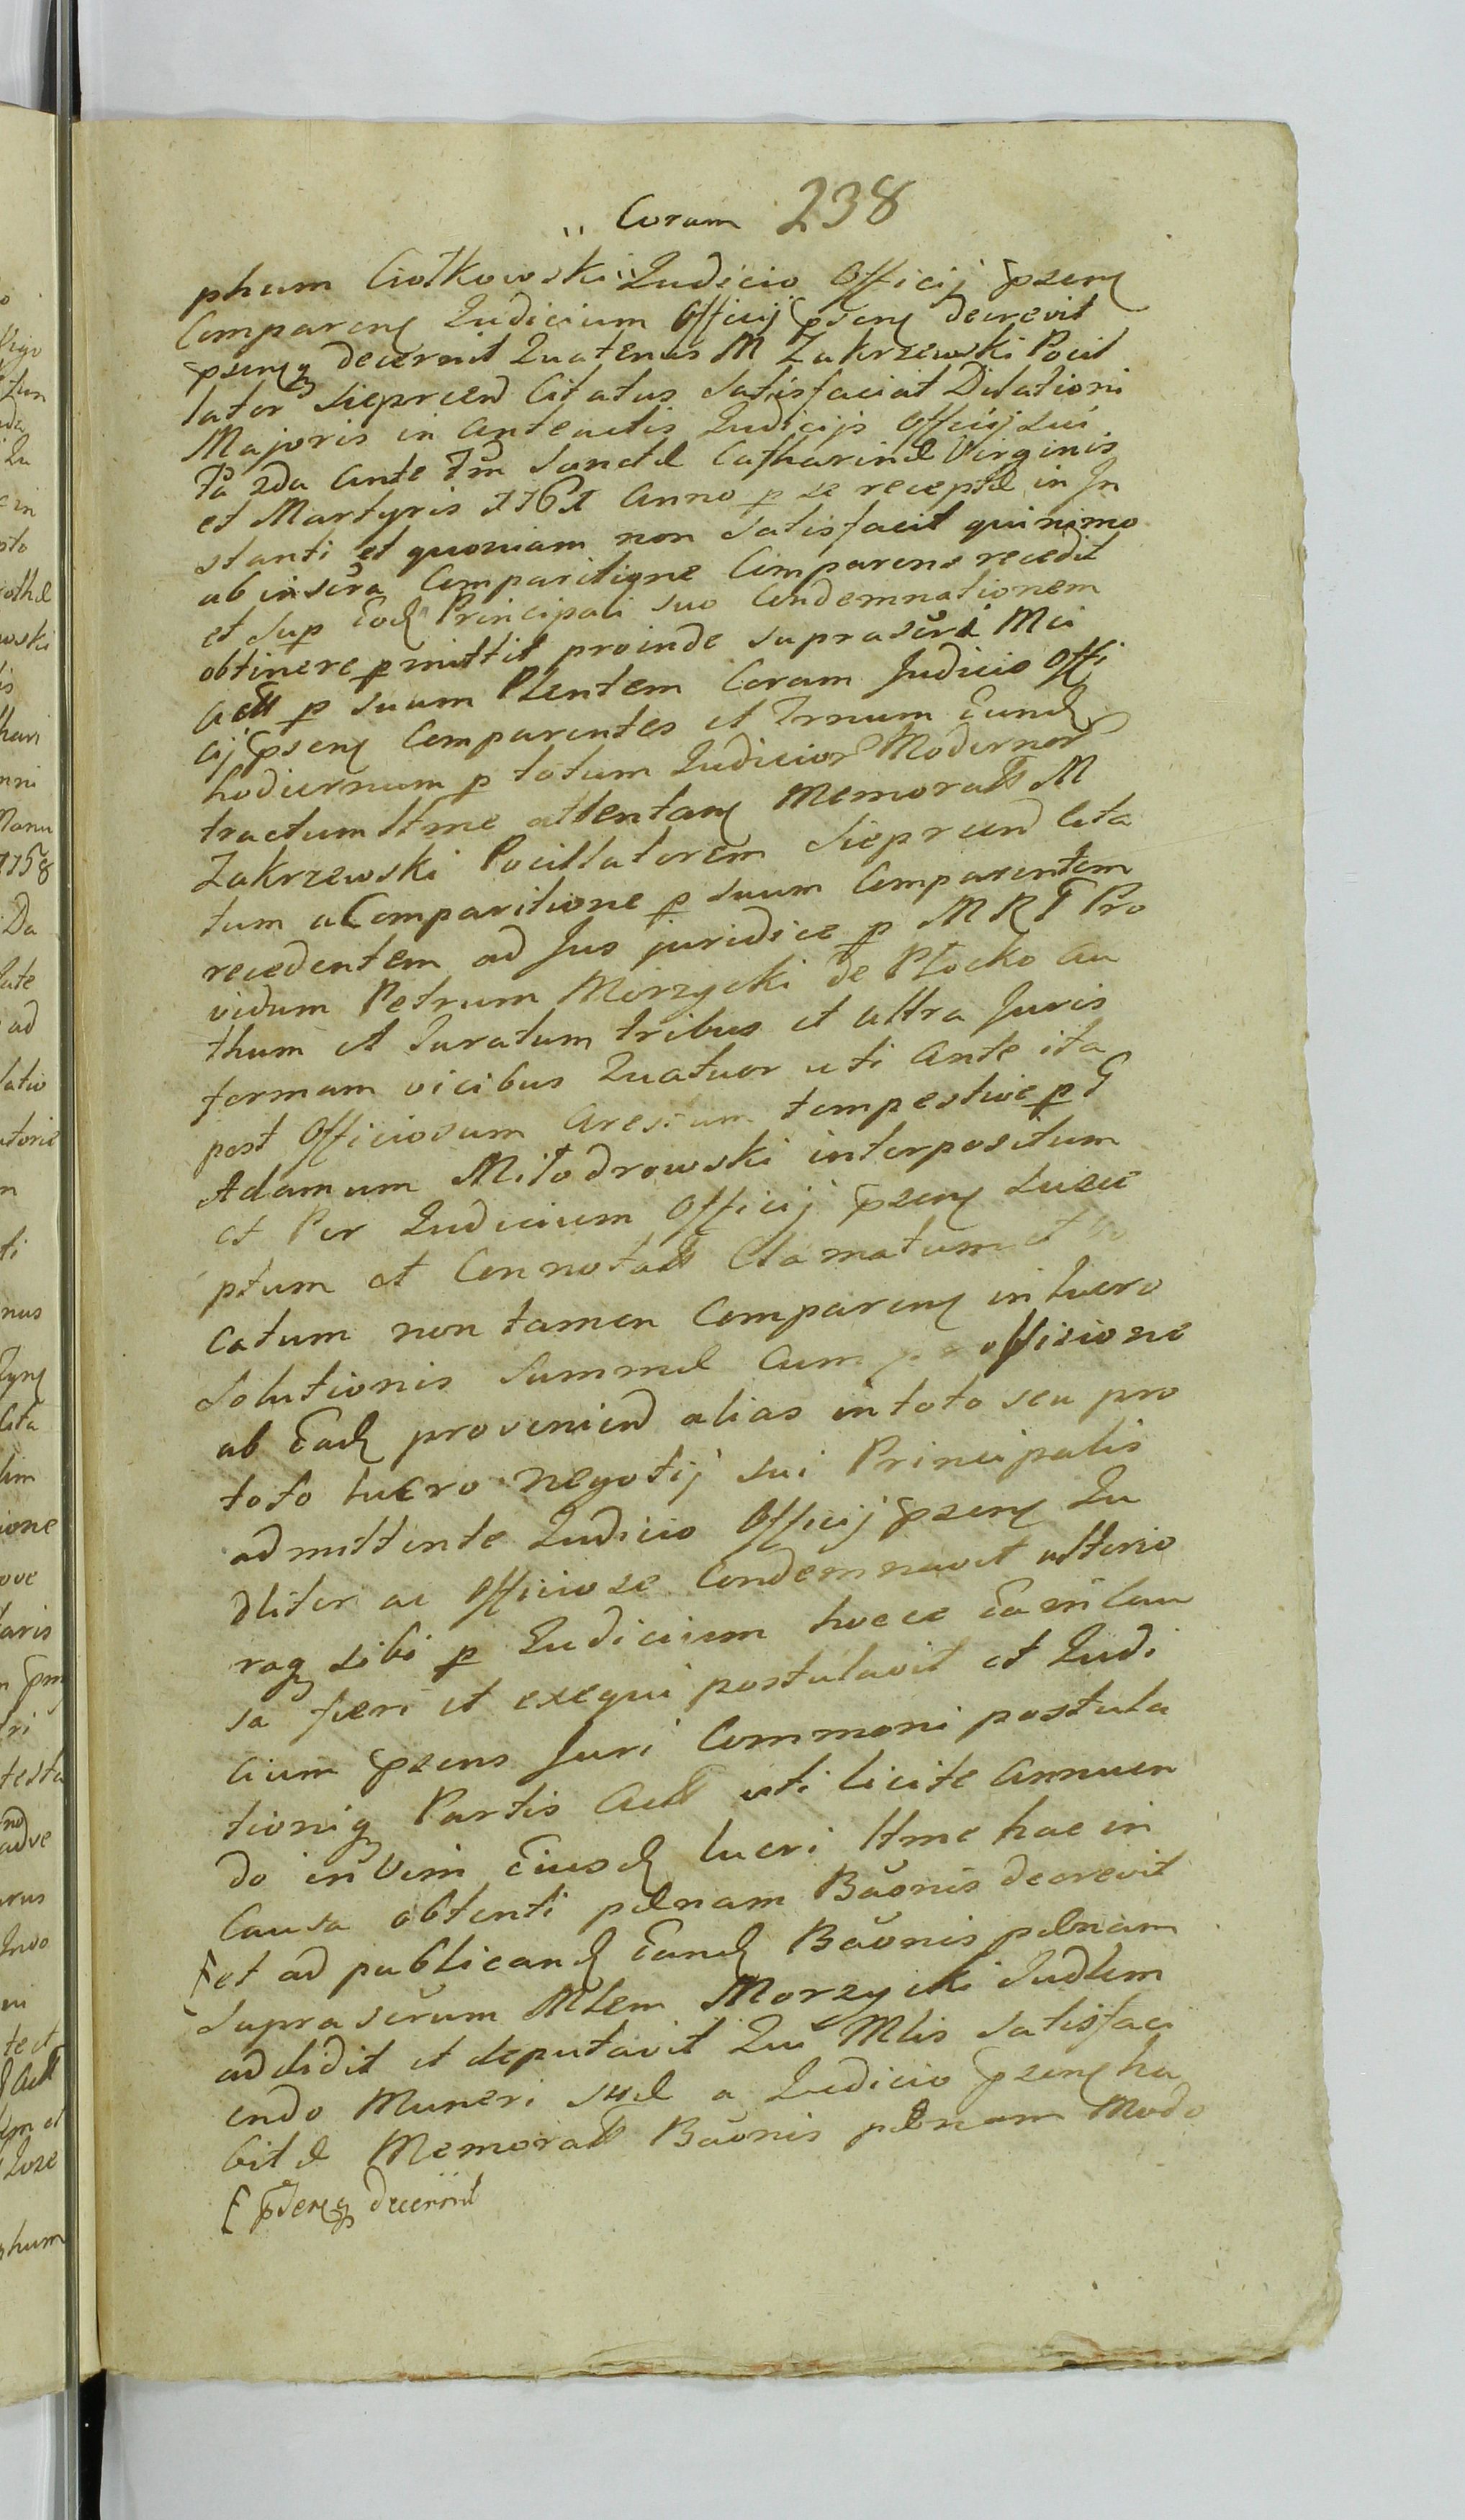 " Coram 238
phum Ciołkowski " Judicio Officij pzens
Comparens Judicium Officij pzens decrevit
pzensq decernit Quatenus M Zakrzewski Pocil
lator Sieprcen Citatus Satisfaciat Dilationi
Majoris in anteactis Judicijs Officij sui
Fa 2da ante Fm Sanctæ Catharinæ Virginis
et Martyris 1761 Anno p se receptæ in In
stanti et quoniam non satisfacit quinimo
ab inscra Comparitione Comparens recedit
et sup Eod Principali suo Condemnationem
obtinere pmittit proinde suprascri Mci
Actt p suum Plentem Coram Judicio Offi
cij pzens Comparentes et Trnum Eund
hodiernum p totum Judicior Modernor
tractum Ltme attentans Memoratt M
Zakrzewski Pocillatorem Sieprcen Cita
tum a Comparitione p suum Comparentem
recedentem ad Jus juridice p MRT Pro
vidum Petrum Morzycki de Płocko au
thum et Juratum tribus et ultra Juris
formam vicibus Quatuor uti ante ita
post Officiosum Arestum tempestive p G
Adamum Miłodrowski interpositum
et Per Judicium Officij pzens susce
ptum et Connotatt Clamatum et vo
catum non tamen Comparens in lucro
Solutionis Summæ Cum provisione
ab Ead provenien alias in toto seu pro
toto lucro negotij sui Principalis
admittente Judicio Officij pzens Ju
dliter ac Officiose Condemnavit ulterio
raq sibi p Judicium hocce Ea in Cau
sa fieri et exequi postulavit et Judi
cium pzens Juri Commoni postula
tioniq Partis Actt uti licite annuen
do in Vim Eiusd lucri Ltme hac in
Causa obtenti pænam Baonis decrevit
[ et ad publicand Eand Baonis pænam
suprascrum Mlem Morzycki Judlem
addidit et deputavit Qui Mlis satisfaci
endo Muneri suæ a Judicio pzens ha
bitæ Memoratt Baonis pænam Modo
[ pzensq decernit